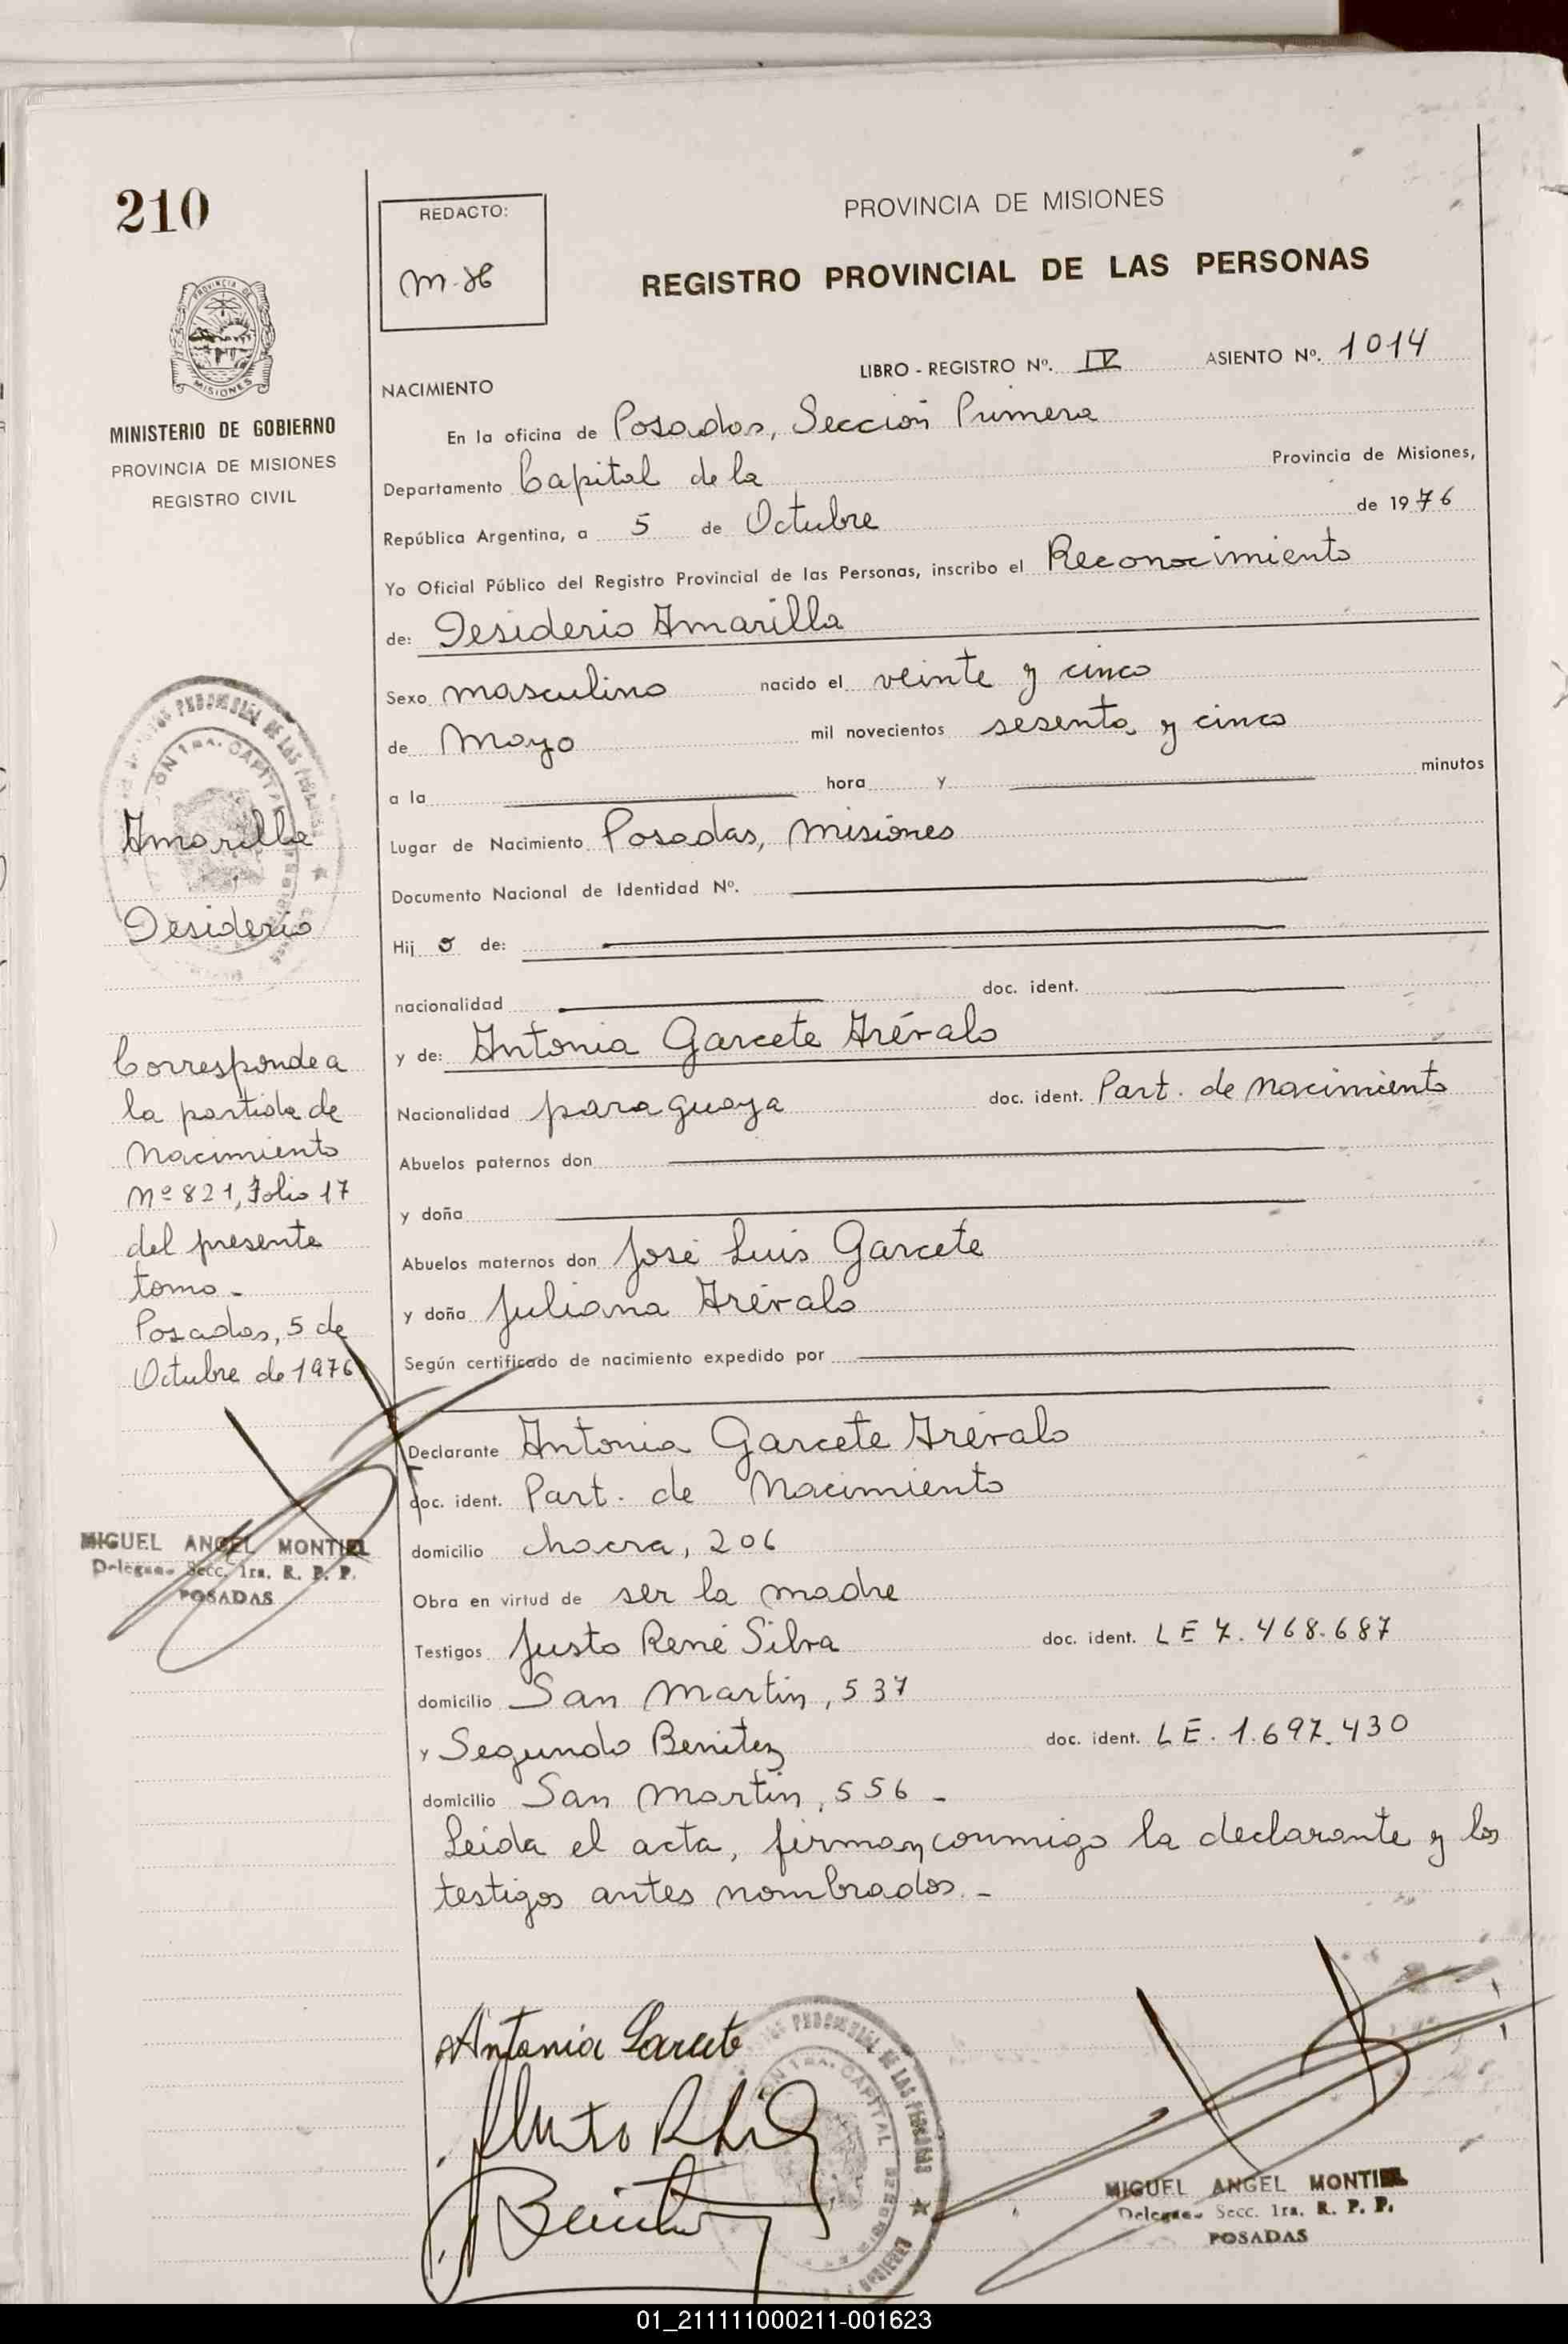 210
REDACTO:
M.H
PROVINCIA DE MISIONES
REGISTRO PROVINCIAL DE LAS PERSONAS
PROVINCIA DE
MISIONES
MINISTERIO DE GOBIERNO
PROVINCIA DE MISIONES
REGISTRO CIVIL
LIBRO - REGISTRO Nº. IV ASIENTO Nº. 1014
NACIMIENTO
En la oficina de Posadas, Sección Primera
Departamento Capital de la Provincia de Misiones,
República Argentina, a 5 de Octubre de 1976
Yo Oficial Público del Registro Provincial de las Personas, inscribo el Reconocimiento
de: Desiderio Amarilla
Sexo masculino nacido el veinte y cinco
de Mayo mil novecientos sesenta y cinco
a la hora y minutos
Lugar de Nacimiento Posadas, Misiones
Documento Nacional de Identidad Nº.
Hij o de:
nacionalidad doc. ident.
y de: Antonia Garcete Arévalo
Nacionalidad paraguaya doc. ident. Part. de Nacimiento
Abuelos paternos don
y doña
Abuelos maternos don José Luis Garcete
y doña Juliana Arévalo
Según certificado de nacimiento expedido por
Declarante Antonia Garcete Arévalo
doc. ident. Part. de Nacimiento
domicilio chacra, 206
Obra en virtud de ser la madre
Testigos Justo René Silva doc. ident. LE 7.468.687
domicilio San Martin, 537
y Segundo Benitez doc. ident. LE. 1.697.430
domicilio San Martin, 556 -
Leida el acta, firman conmigo la declarante y los
testigos antes nombrados. -
Amarilla
Desiderio
Corresponde a
la partida de
Nacimiento
Nº 821, Folio 17
del presente
tomo -
Posadas, 5 de
Octubre de 1976
MIGUEL ANGEL MONTIEL
Delegado Secc. 1ra. R. P. P.
POSADAS
Antonia Garcete
MIGUEL ANGEL MONTIEL
Delegado Secc. 1ra. R. P. P.
POSADAS
01_211111000211-001623